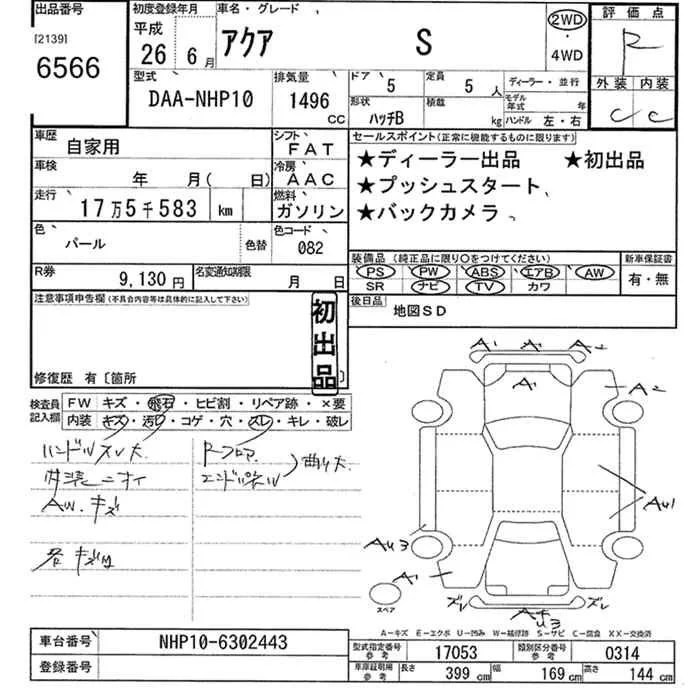 出品番号
[2139]
6566
初度登録年月 車名・グレード
平成
26 6月 アクア S
2WD
・
4WD
評価点
R
外装 内装
C C
型式 排気量
DAA-NHP10 1496 CC
ドア 5 定員 5 人
形状 ハッチB 積載 kg
ディーラー・並行
モデル年式 年
ハンドル 左・右
車歴 自家用
シフト FAT
車検 年 月( 日)
冷房 AAC
走行 17万5千583 km
燃料 ガソリン
色 パール 色替
色コード 082
R券 9,130円 名変通知期限 月 日
セールスポイント(正常に機能するものに限ります)
★ディーラー出品 ★初出品
★プッシュスタート
★バックカメラ
装備品(純正品に限り○をつけてください) 新車保証書
PS PW ABS エアB AW
SR ナビ TV カワ
有・無
後日品 地図SD
注意事項申告欄(不具合内容等は具体的に記入して下さい)
初出品
修復歴 有〔箇所 〕
検査員記入欄
FW キズ・飛石・ヒビ割・リペア跡・×要
内装 キズ・汚レ・コゲ・穴・スレ・キレ・破レ
ハンドルスレ大
内装ニオイ
AW.キズ
各キズ凹
Rフロア
エンドパネル
曲り大
A1 A1 A2
A1
A2
AU1
AU3
A1
スペア
ズレ ズレ
AU3
A-キズ E-エクボ U-凹み W-補修跡 S-サビ C-腐食 XX-交換済
車台番号 NHP10-6302443
登録番号
型式指定番号 参考 17053 類別区分番号 参考 0314
車庫証明用 参考 長さ 399cm 幅 169cm 高さ 144cm